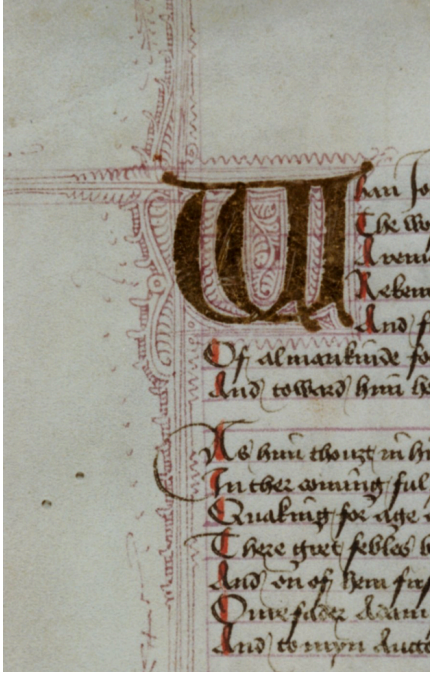 Whan Jo
The wo
A reme
Reken
And f
Of almankinde fe
And toward him ho
As him thouȝt in hi
In ther coming ful
Quaking for age a
There gret febles b
And on of hem firs
Oure fader Adam
And to myn aucto